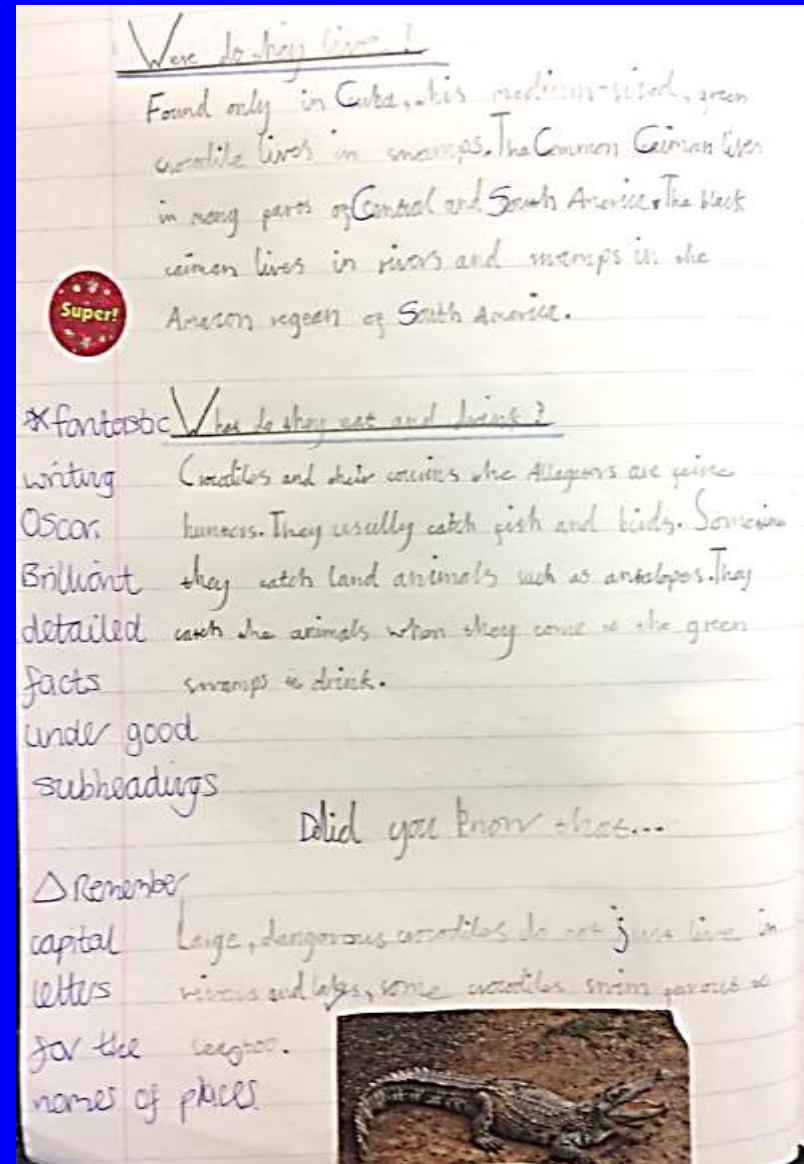 Were do they live?
Found only in Cuba, this medium-sized, green
crocodile lives in swamps. The Common Caiman lives
in many parts of Central and South America. The black
caiman lives in rivers and swamps in the
Super!
Amazon regeon of South America.
*fantastic
writing
Oscar.
Brilliant
detailed
facts
under good
subheadings
What do they eat and drink?
Crocodiles and their cousins the Allegators are feirce
hunters. They usully catch fish and birds. Sometime
they catch land animals such as antelopes. They
catch the animals when they come to the green
swamps to drink.
Did you know that...
△ Remember
capital
letters
for the
names of places
Large, dangorous crocodiles do not just live in
rivers and lakes, some crocodiles swim